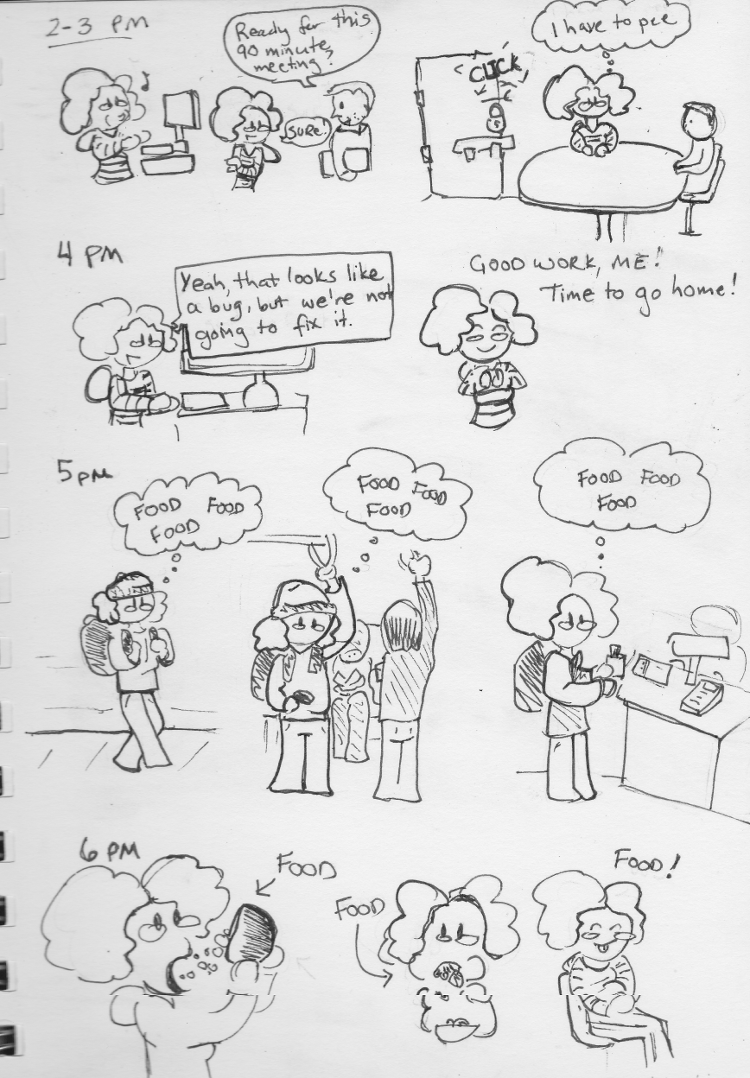 2-3 PM
Ready for this
90 minute
meeting?
SURE!
CLICK
I have to pee
4 PM
Yeah, that looks like
a bug, but we're not
going to fix it.
GOOD WORK, ME!
Time to go home!
5 PM
FOOD FOOD
FOOD
FOOD FOOD
FOOD
FOOD FOOD
FOOD
6 PM
FOOD
FOOD
FOOD!